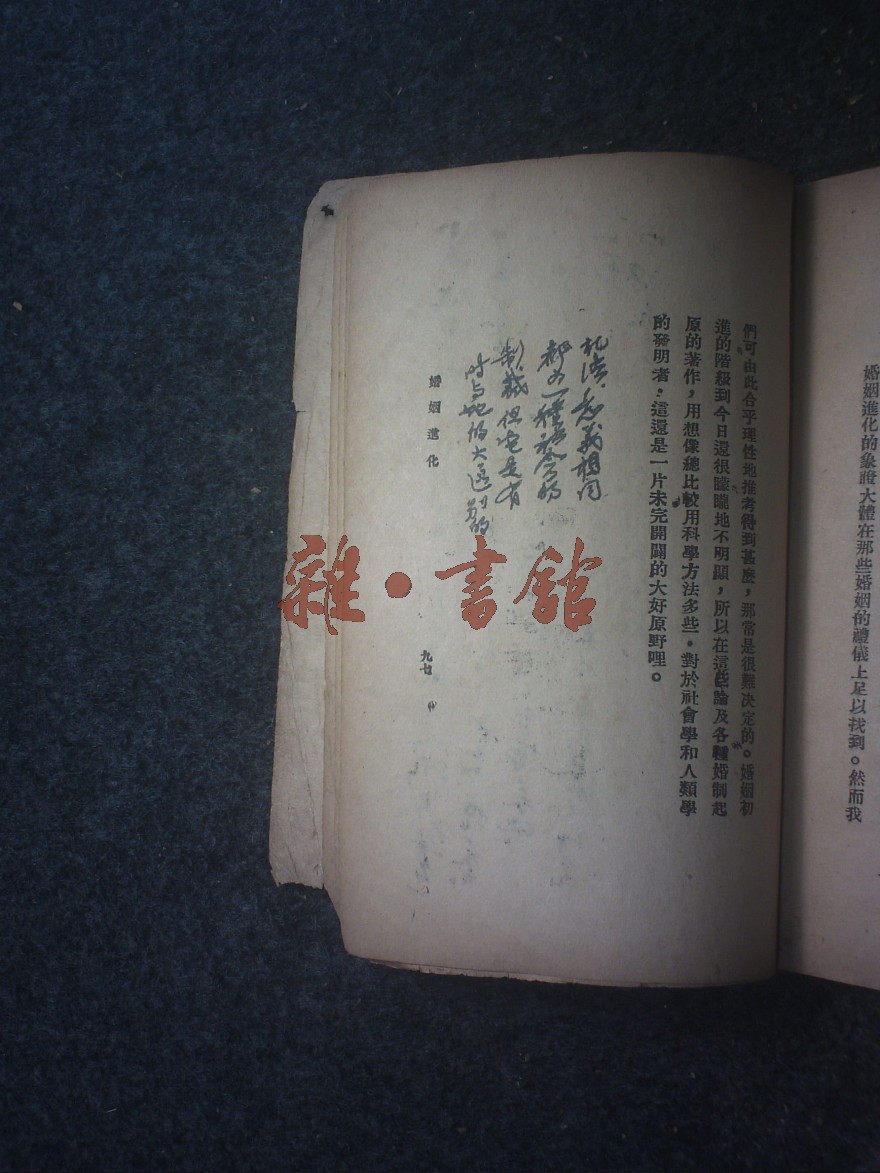 婚姻進化的象證大體在那些婚姻的禮儀上足以找到。然而我
們可由此合乎理性地推考得到甚麼，那當是很難決定的。婚姻初
進的階級到今日還很矇矓地不明顯，所以在這些論及各種婚制起
原的著作，用想像總比較用科學方法多些。對於社會學和人類學
的發明者，這還是一片未完開闢的大好原野哩。
意義相同
都是一種社會的
制裁但它是有
時与地的大區別的
婚姻進化
九七
雜·書館